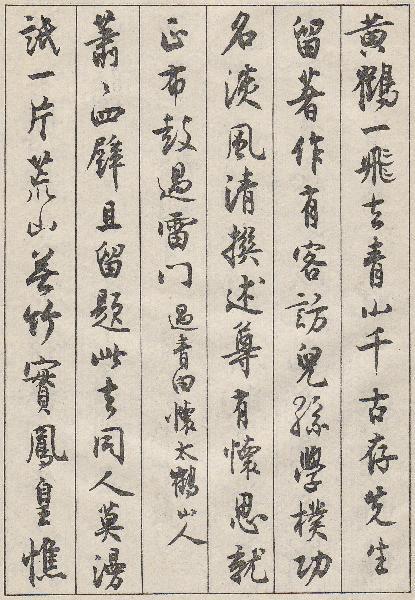 黃鶴一飛去青山千古存先生
留著作有客訪兒孫學樸功
名淡風清撰述尊有懷思就
正布鼓過雷門過青田懷太鶴山人
蕭〻四壁且留題此去同人莫漫
詆一片荒山無竹實鳳皇憔